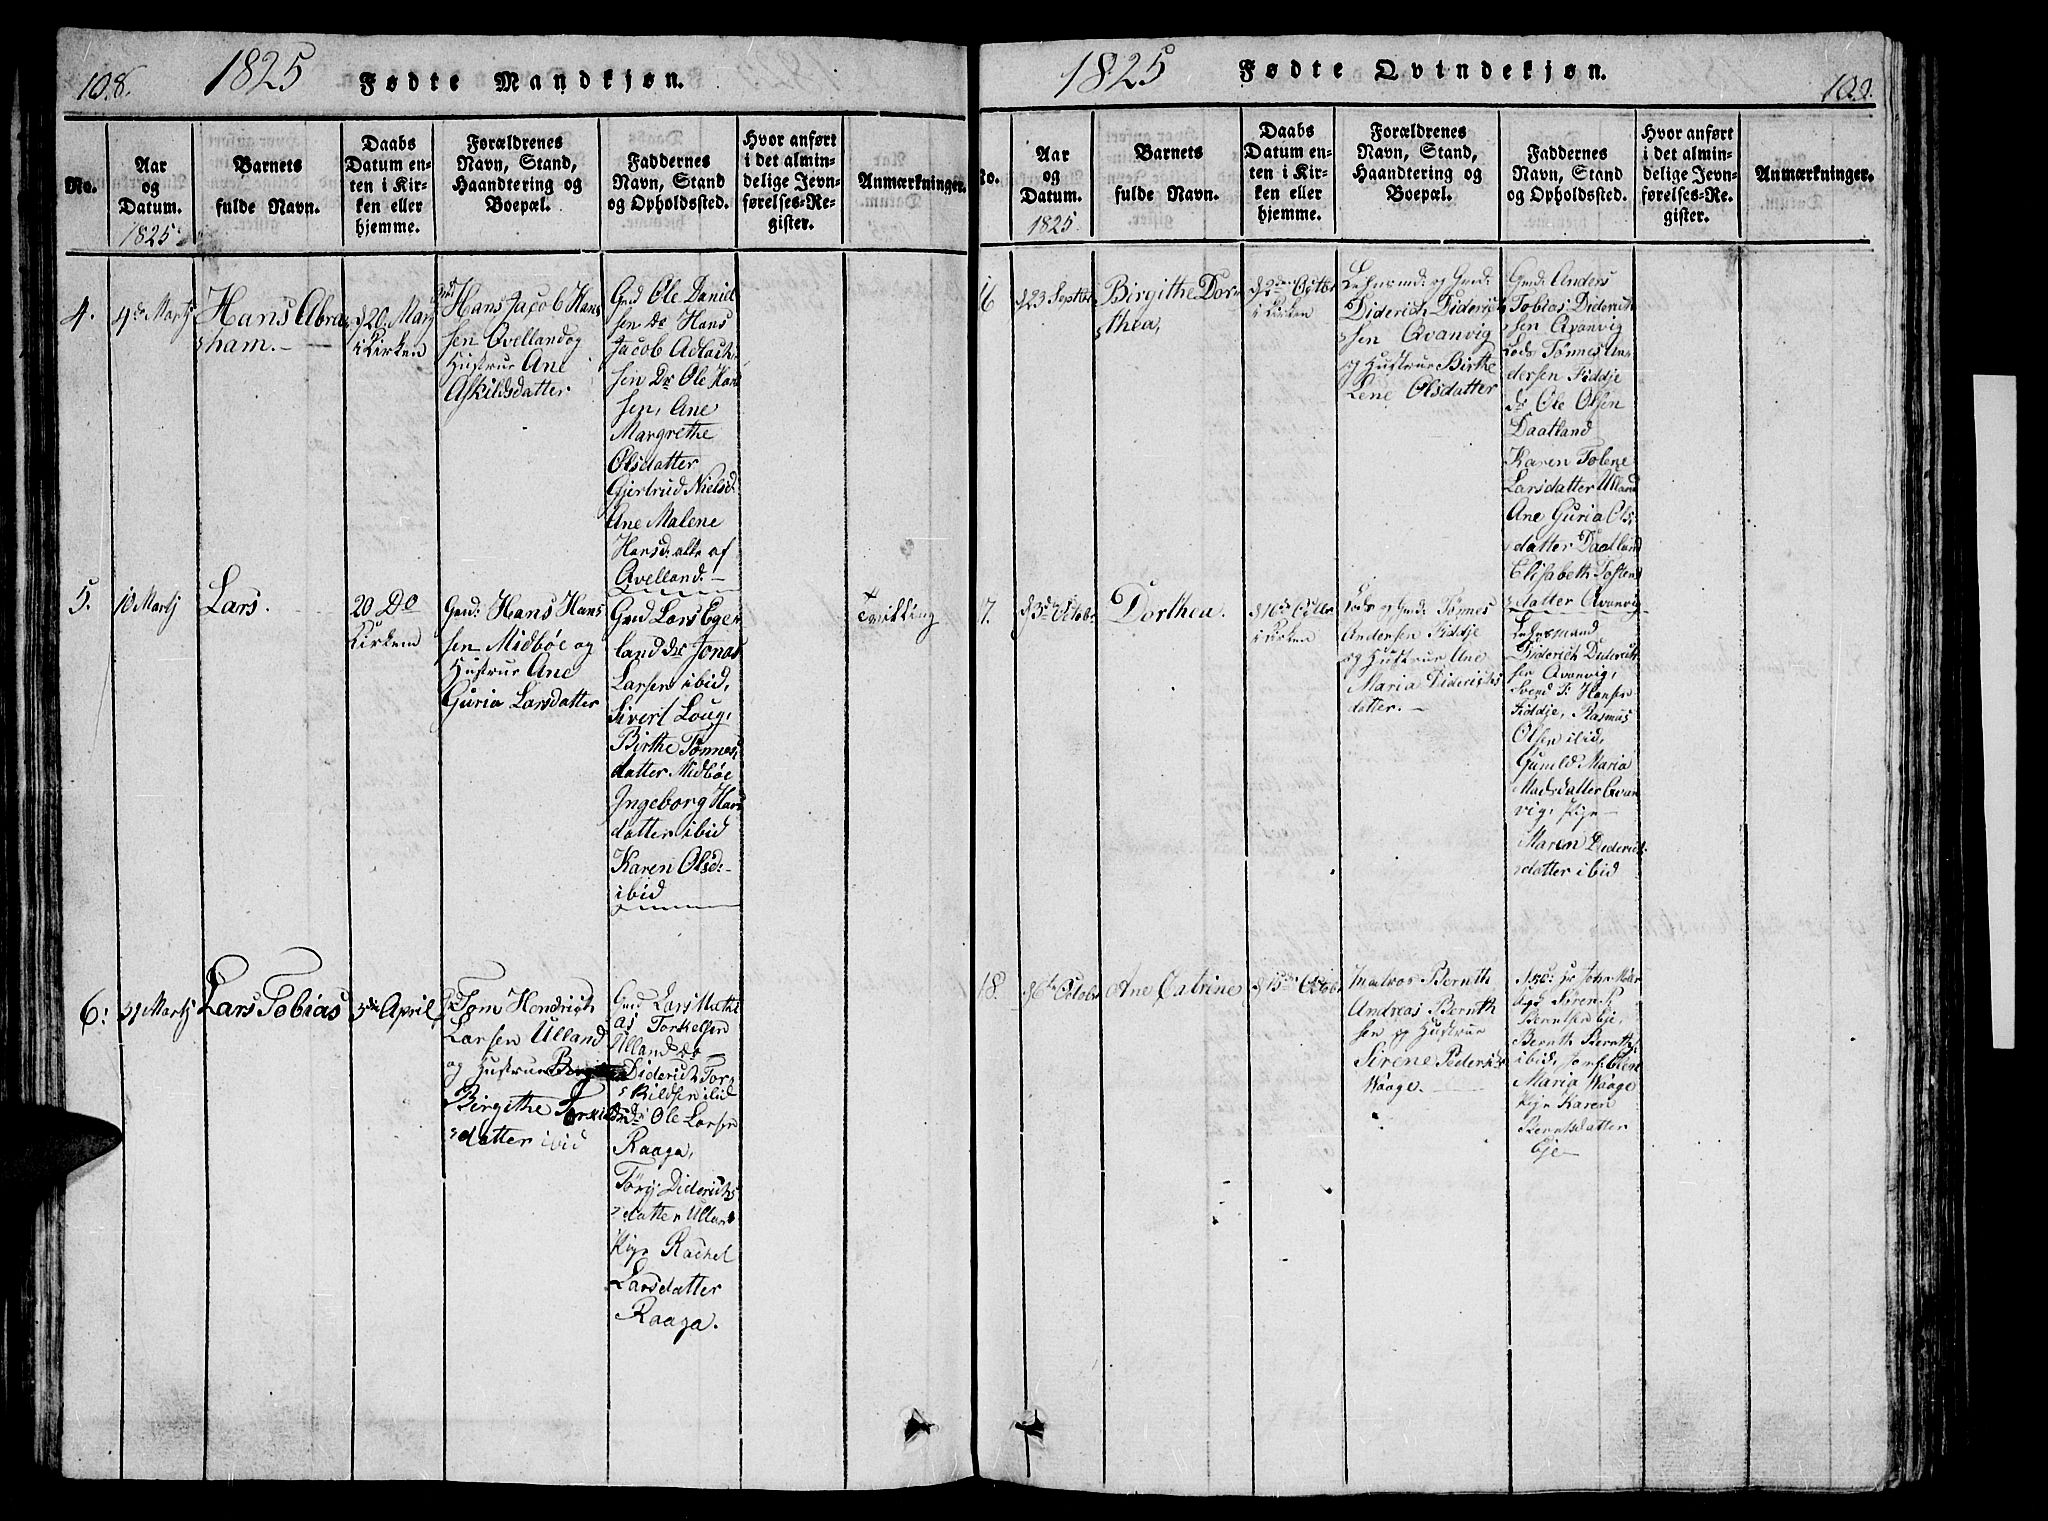 108.
1825
Fødte Mandkjøn.
No.
Aar
og
Datum.
1825
Barnets
fulde Navn.
Daabs
Datum en-
ten i Kir-
ken eller
hjemme.
Forældrenes
Navn, Stand,
Haandtering og
Boepæl.
Faddernes
Navn, Stand
og Opholdssted.
Hvor anført
i det almin-
delige Jevn-
førelses-Re-
gister.
Anmærkninger.
4.
4de Martj
Hans Abra-
ham.
d 20 Martj
i Kirken
Gmd Hans Jacob Han-
sen Ovelland og
Hustrue Ane
Askildsdatter
Gmd Ole Daniel
sen Do Hans
Jacob Adlach-
sen Do Ole Han
sen, Ane
Margrethe
Olsdatter
Gjertrud Nielsd:
Ane Malene
Hansd: alle af
Ovelland.
5.
10 Martj
Lars.
20 Do
Kirken
Gmd: Hans Han
sen Midbøe og
Hustrue Ane
Guria Larsdatter
Gmd Lars Ege-
land do Jonas
Larsen ibid,
Sivert Loug,
Birthe Tønnes
datter Midbøe
Ingeborg Hans
datter ibid
Karen Olsd:
ibid
Tvilling
6:
31 Martj
Lars Tobias
3de April
Tom Hendrich
Larsen Ulland
og Hustrue
Birgithe Torkilds
datter ibid
Gmd Lars Mathi
as Torkelsen
Ulland do
Diderich Tor-
kildsen ibid
do Ole Larsen
Raaga,
Tørij Diderichs
datter Ulland
Pige Rachel
Larsdatter
Raaga.
1825
Fødte Qvindekjøn.
109.
No.
Aar
og
Datum.
1825.
Barnets
fulde Navn.
Daabs
Datum en-
ten i Kir-
ken eller
hjemme.
Forældrenes
Navn, Stand,
Haandtering og
Boepæl.
Faddernes
Navn, Stand
og Opholdssted.
Hvor anført
i det almin-
delige Jevn-
førelses-Re-
gister.
Anmærkninger.
16
d 23 Septbr
Birgithe Dor-
thea,
d 2den Octbr
i Kirken
Lehnsmd: og Gmd:
Diderich Diderich
sen Qvanvig
og Hustrue Birthe
Lene Olsdatter
Gmd: Anders
Tobias Diderich
sen Qvanvig
Lods Tønnes An-
dersen Fiddje
do Ole Olsen
Daatland
Karen Tolene
Larsdatter Ulland
Ane Guria Ols-
datter Daatland
Elisabeth Tostens
datter Qvanvig
17.
d 3de Octobr
Dorthea.
d 16de Octbr
i Kirken
Lods og Gmd: Tønnes
Andersen Fiddje
og Hustrue Ane
Maria Diderichs
datter.
Lehnsmand
Diderich Diderich
sen Qvanvig,
Svend P. Hansen
Fiddje, Rasmus
Olsen ibid,
Gunild Maria
Madsdatter Qvan
vig, Pige
Maren Diderich-
datter ibid
18.
d 6te Octobr
Ane Catrine
d 15de Octobr
Matros Bernth
Andreas Bernth
sen og Hustrue
Sirene Pedersd
Waage.
Berntsen Eje,
Bernth Bernths
ibid, Jomf: Elene
Maria Waage
Pige Karen
Berntsdatter
Eje